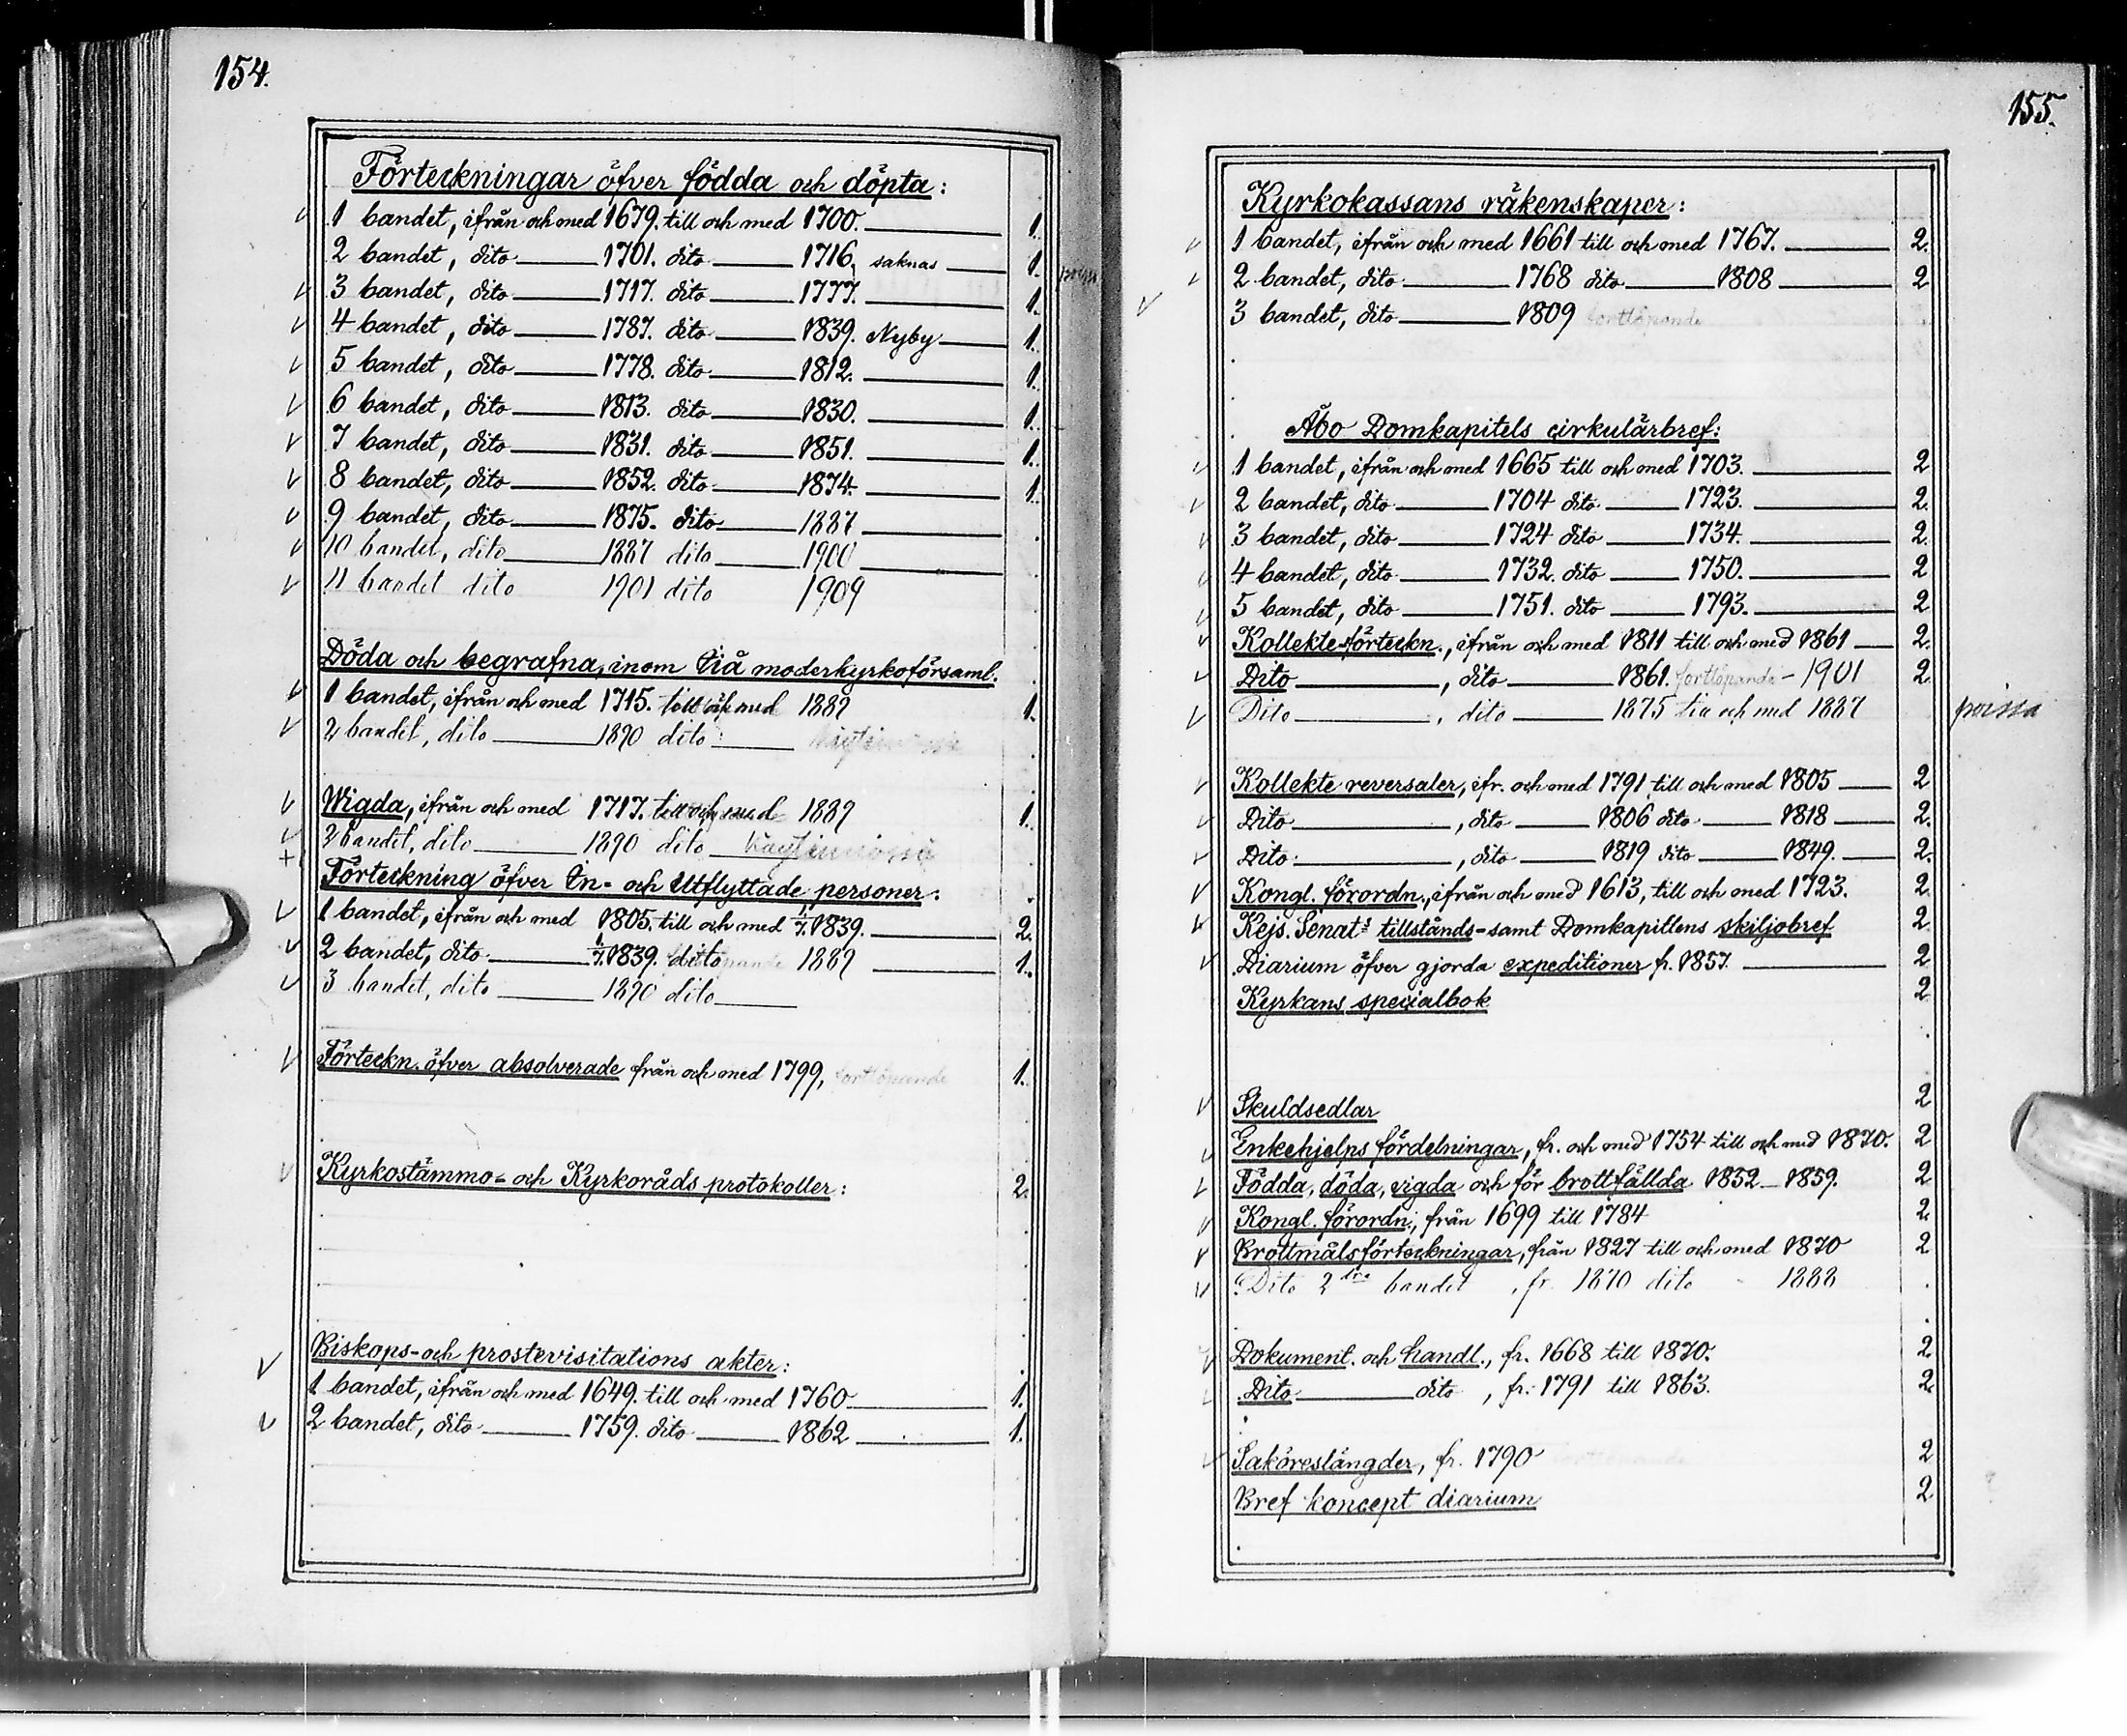 154.
Förteckningar öfver födda och döpta:
1 bandet, ifrån och med 1679. till och med 1700. 1.
2 bandet, dito 1701. dito 1716, saknas 1. poissa
3 bandet, dito 1717. dito 1777. 1.
4 bandet, dito 1787. dito 1839. Nyby 1.
5 bandet, dito 1778. dito 1812. 1.
6 bandet, dito 1813. dito 1830. 1.
7 bandet, dito 1831. dito 1851. 1.
8 bandet, dito 1852. dito 1874. 1.
9 bandet, dito 1875. dito 1887
10 bandet, dito 1887 dito 1900
11 bandet dito 1901 dito 1909
Döda och begrafna, inom Uiå moderkyrkoförsaml.
1 bandet, ifrån och med 1715. till och med 1889 1.
2 bandet, dito 1890 dito käytännössä
Wigda, ifrån och med 1717. till och med 1889 1.
2 bandet, dito 1890 dito käytännössä
Förteckning öfver In- och Utflyttade personer:
1 bandet, ifrån och med 1805. till och med 1/7. 1839. 2.
2 bandet, dito 1/7. 1839. dito 1889 1.
3 bandet, dito 1890 dito
Förteckn. öfver absolverade från och med 1799, fortlöpande 1.
Kyrkostämmo- och Kyrkoråds protokoller: 2.
Biskops- och prostevisitations akter:
1 bandet, ifrån och med 1649. till och med 1760 1.
2 bandet, dito 1759. dito 1862 1.
155.
Kyrkokassans räkenskaper:
1 bandet, ifrån och med 1661 till och med 1767. 2.
2 bandet, dito 1768 dito 1808 2
3 bandet, dito 1809 fortlöpande
Åbo Domkapitels cirkulärbref:
1 bandet, ifrån och med 1665 till och med 1703. 2
2 bandet, dito 1704 dito 1723. 2.
3 bandet, dito 1724 dito 1734. 2.
4 bandet, dito 1732. dito 1750. 2
5 bandet, dito 1751. dito 1793. 2
Kollekteförteckn., ifrån och med 1811 till och med 1861 2.
Dito, dito 1861. fortlöpande - 1901 2.
Dito, dito 1875 till och med 1887 poissa
Kollekte reversaler, ifr. och med 1791 till och med 1805 2
Dito, dito 1806 dito 1818 2.
Dito, dito 1819 dito 1849. 2.
Kongl. förordn., ifrån och med 1613, till och med 1723. 2.
Kejs. Senats tillstånds- samt Domkapitlens skiljobref 2.
Diarium öfver gjorda expeditioner fr. 1857. 2
Kyrkans specialbok 2
Skuldsedlar 2
Enkehjelps fördelningar, fr. och med 1754 till och med 1870. 2
Födda, döda, vigda och för brott fällda 1832-1859. 2
Kongl. förordn., från 1699 till 1784 2.
Brottmålsförteckningar, från 1827 till och med 1870 2
Dito 2dra bandet, fr. 1870 dito 1888
Dokument. och handl., fr. 1668 till 1870. 2
Dito dito, fr. 1791 till 1863. 2.
Saköreslängder, fr. 1790 fortlöpande 2
Bref koncept diarium 2